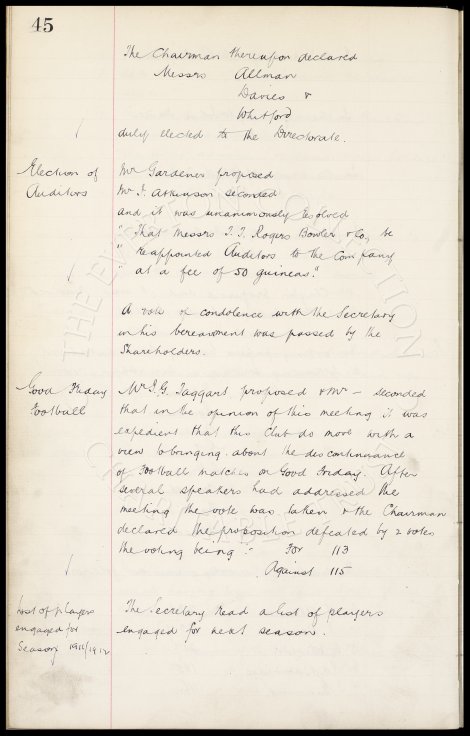 45
The Chairman thereupon declared
Messrs Allman
Davies &
Whitford
duly elected to the Directorate.
Election of
Auditors
Mr Gardener proposed
Mr J. Atkinson seconded
and it was unanimously resolved
" That Messrs T. J. Rogers Bowler & Co, be
" reappointed Auditors to the Company
" at a fee of 50 guineas."
A vote of condolence with the Secretary
in his bereavement was passed by the
Shareholders.
Good Friday
Football
Mr J. G. Taggart proposed & Mr — seconded
that in the opinion of this meeting it was
expedient that this Club do move with a
view to bringing about the discontinuance
of Football matches on Good Friday. After
several speakers had addressed the
meeting the vote was taken & the Chairman
declared the proposition defeated by 2 votes
the voting being :- For 113
Against 115
List of players
engaged for
Season 1911/1912
The Secretary read a list of players
engaged for next season.
THE EVERTON COLLECTION